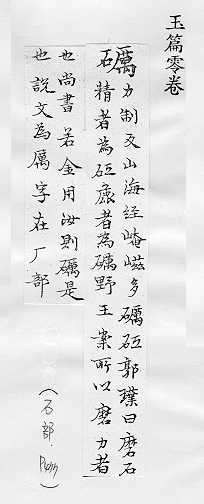 玉篇零卷
礪力制反山海經崦嵫多礪砥郭璞曰磨石
精者為砥麁者為礪野王案所以磨力者
也尚書若金用汝則礪是
也說文為厲字在厂部
(石部)